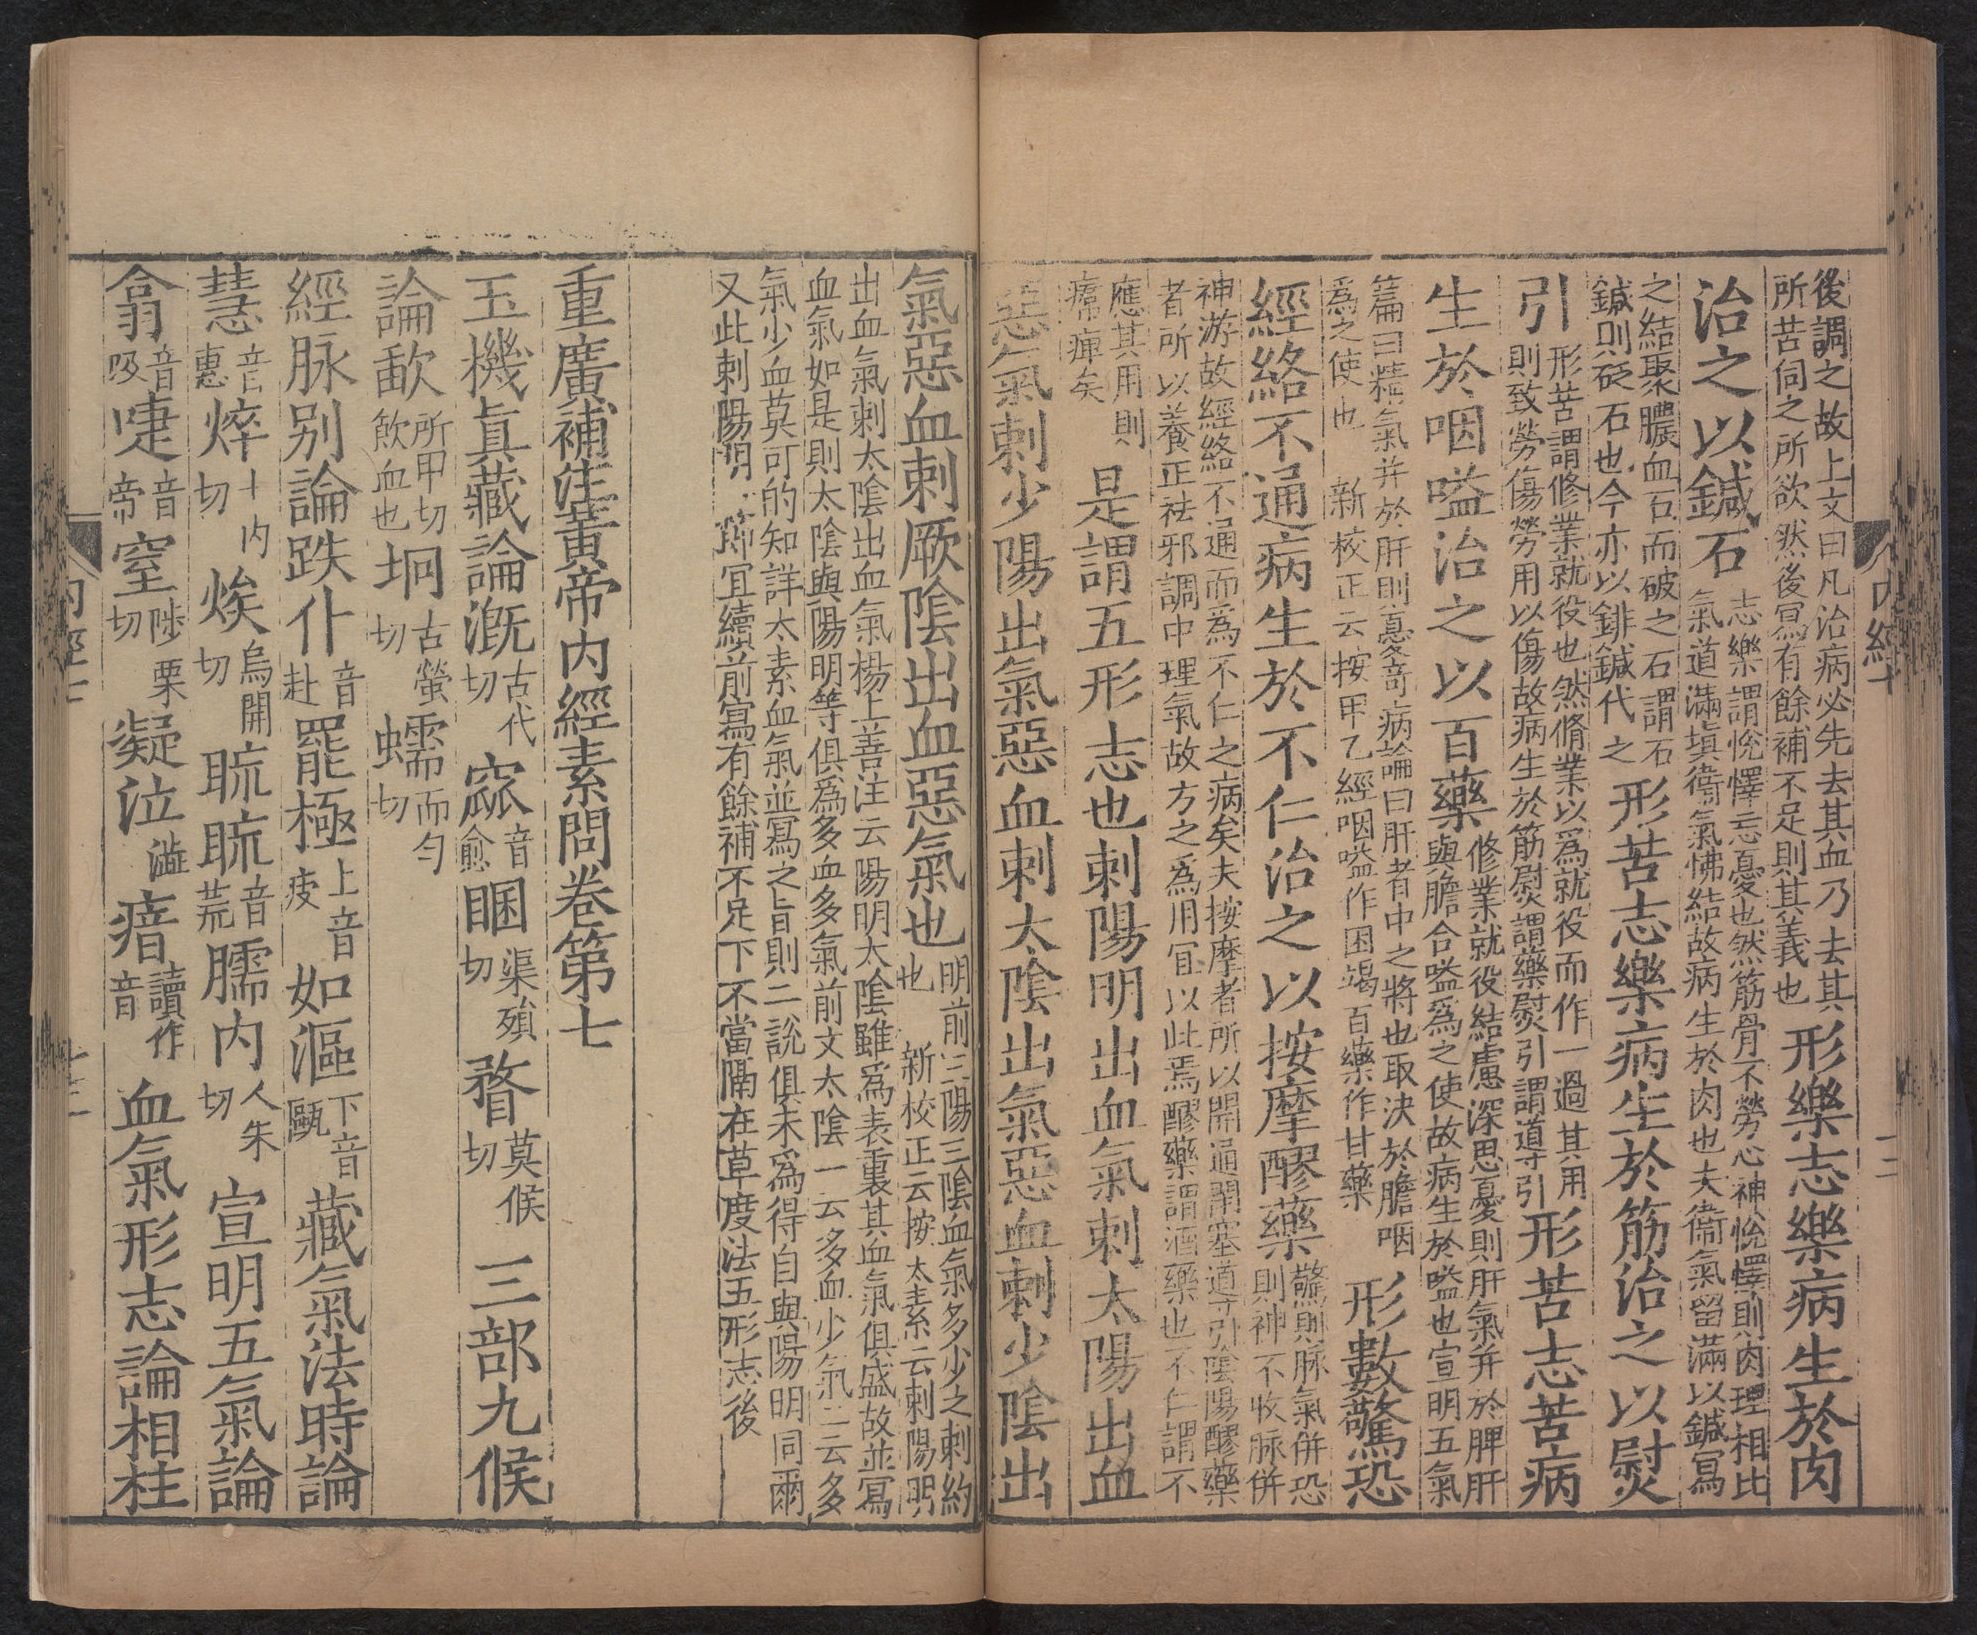 後調之故上文曰凡治病必先去其血乃去其
所苦伺之所欲然後寫有餘補不足則其義也
形樂志樂病生於肉
治之以鍼石
志樂謂悅懌忘憂也然筋骨不勞心神悅懌則肉理相比
氣道滿塡衞氣怫結故病生於肉也夫衞氣留滿以鍼寫
之結聚膿血石而破之石謂石
鍼則砭石也今亦以䤵鍼代之
形苦志樂病生於筋治之以熨
引
形苦謂修業就役也然脩業以爲就役而作一過其用
則致勞傷勞用以傷故病生於筋熨謂藥熨引謂導引
形苦志苦病
生於咽嗌治之以百藥
修業就役結慮深思憂則肝氣并於脾肝
與膽合嗌爲之使故病生於嗌也宣明五氣
篇曰精氣并於肝則憂奇病論曰肝者中之將也取決於膽咽
爲之使也　新校正云按甲乙經咽嗌作困竭百藥作甘藥
形數驚恐
經絡不通病生於不仁治之以按摩醪藥
驚則脉氣併恐
則神不收脉併
神游故經絡不通而爲不仁之病矣夫按摩者所以開通閉塞導引陰陽醪藥
者所以養正祛邪調中理氣故方之爲用冝以此焉醪藥謂酒藥也不仁謂不
應其用則
𤸷痺矣
是謂五形志也刺陽明出血氣刺太陽出血
惡氣刺少陽出氣惡血刺太陰出氣惡血刺少陰出
氣惡血刺厥陰出血惡氣也
明前三陽三陰血氣多少之刺約
也　新校正云按太素云刺陽明
出血氣刺太陰出血氣楊上善注云陽明太陰雖爲表裏其血氣俱盛故並寫
血氣如是則太陰與陽明等俱爲多血多氣前文太陰一云多血少氣二云多
氣少血莫可的知詳太素血氣並寫之旨則二說俱未爲得自與陽明同爾
又此刺陽明一節冝續前寫有餘補不足下不當隔在草度法五形志後
重廣補注黃帝內經素問卷第七
玉機眞藏論漑古代切窳音愈䐃渠殞切瞀莫候切三部九候
論歃所甲切飲血也坰古螢切蠕而勻切
經脉別論跌仆音赴罷極上音疲如漚下音甌藏氣法時論
慧音惠焠十內切焌烏開切㿠㿠音荒臑內人朱切宣明五氣論
翕音吸啑音帝窒陟栗切凝泣澁瘖讀作音血氣形志論相柱
內經七
十二